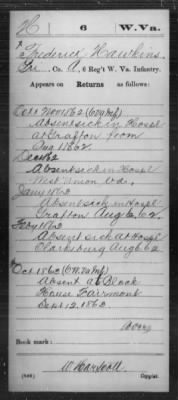 H 6 W.Va.
Frederick Hawkins
Co. A, 6 Reg't W. Va. Infantry.
Appears on Returns as follows:
Oct & Nov 1862
Absent sick in Hospl
at Grafton from
Aug 1 1862.
Dec 1862
Absent sick in Hospl
Va.
Jany 1862
Absent sick in Hospl
Grafton Aug 6, 62.
Feby 1862
Absent sick at Hospl
Clarksburg Aug 6 62
Oct 1862
Absent at Block
House Fairmont
Sept 12, 1862.
Book mark:
Copyist.